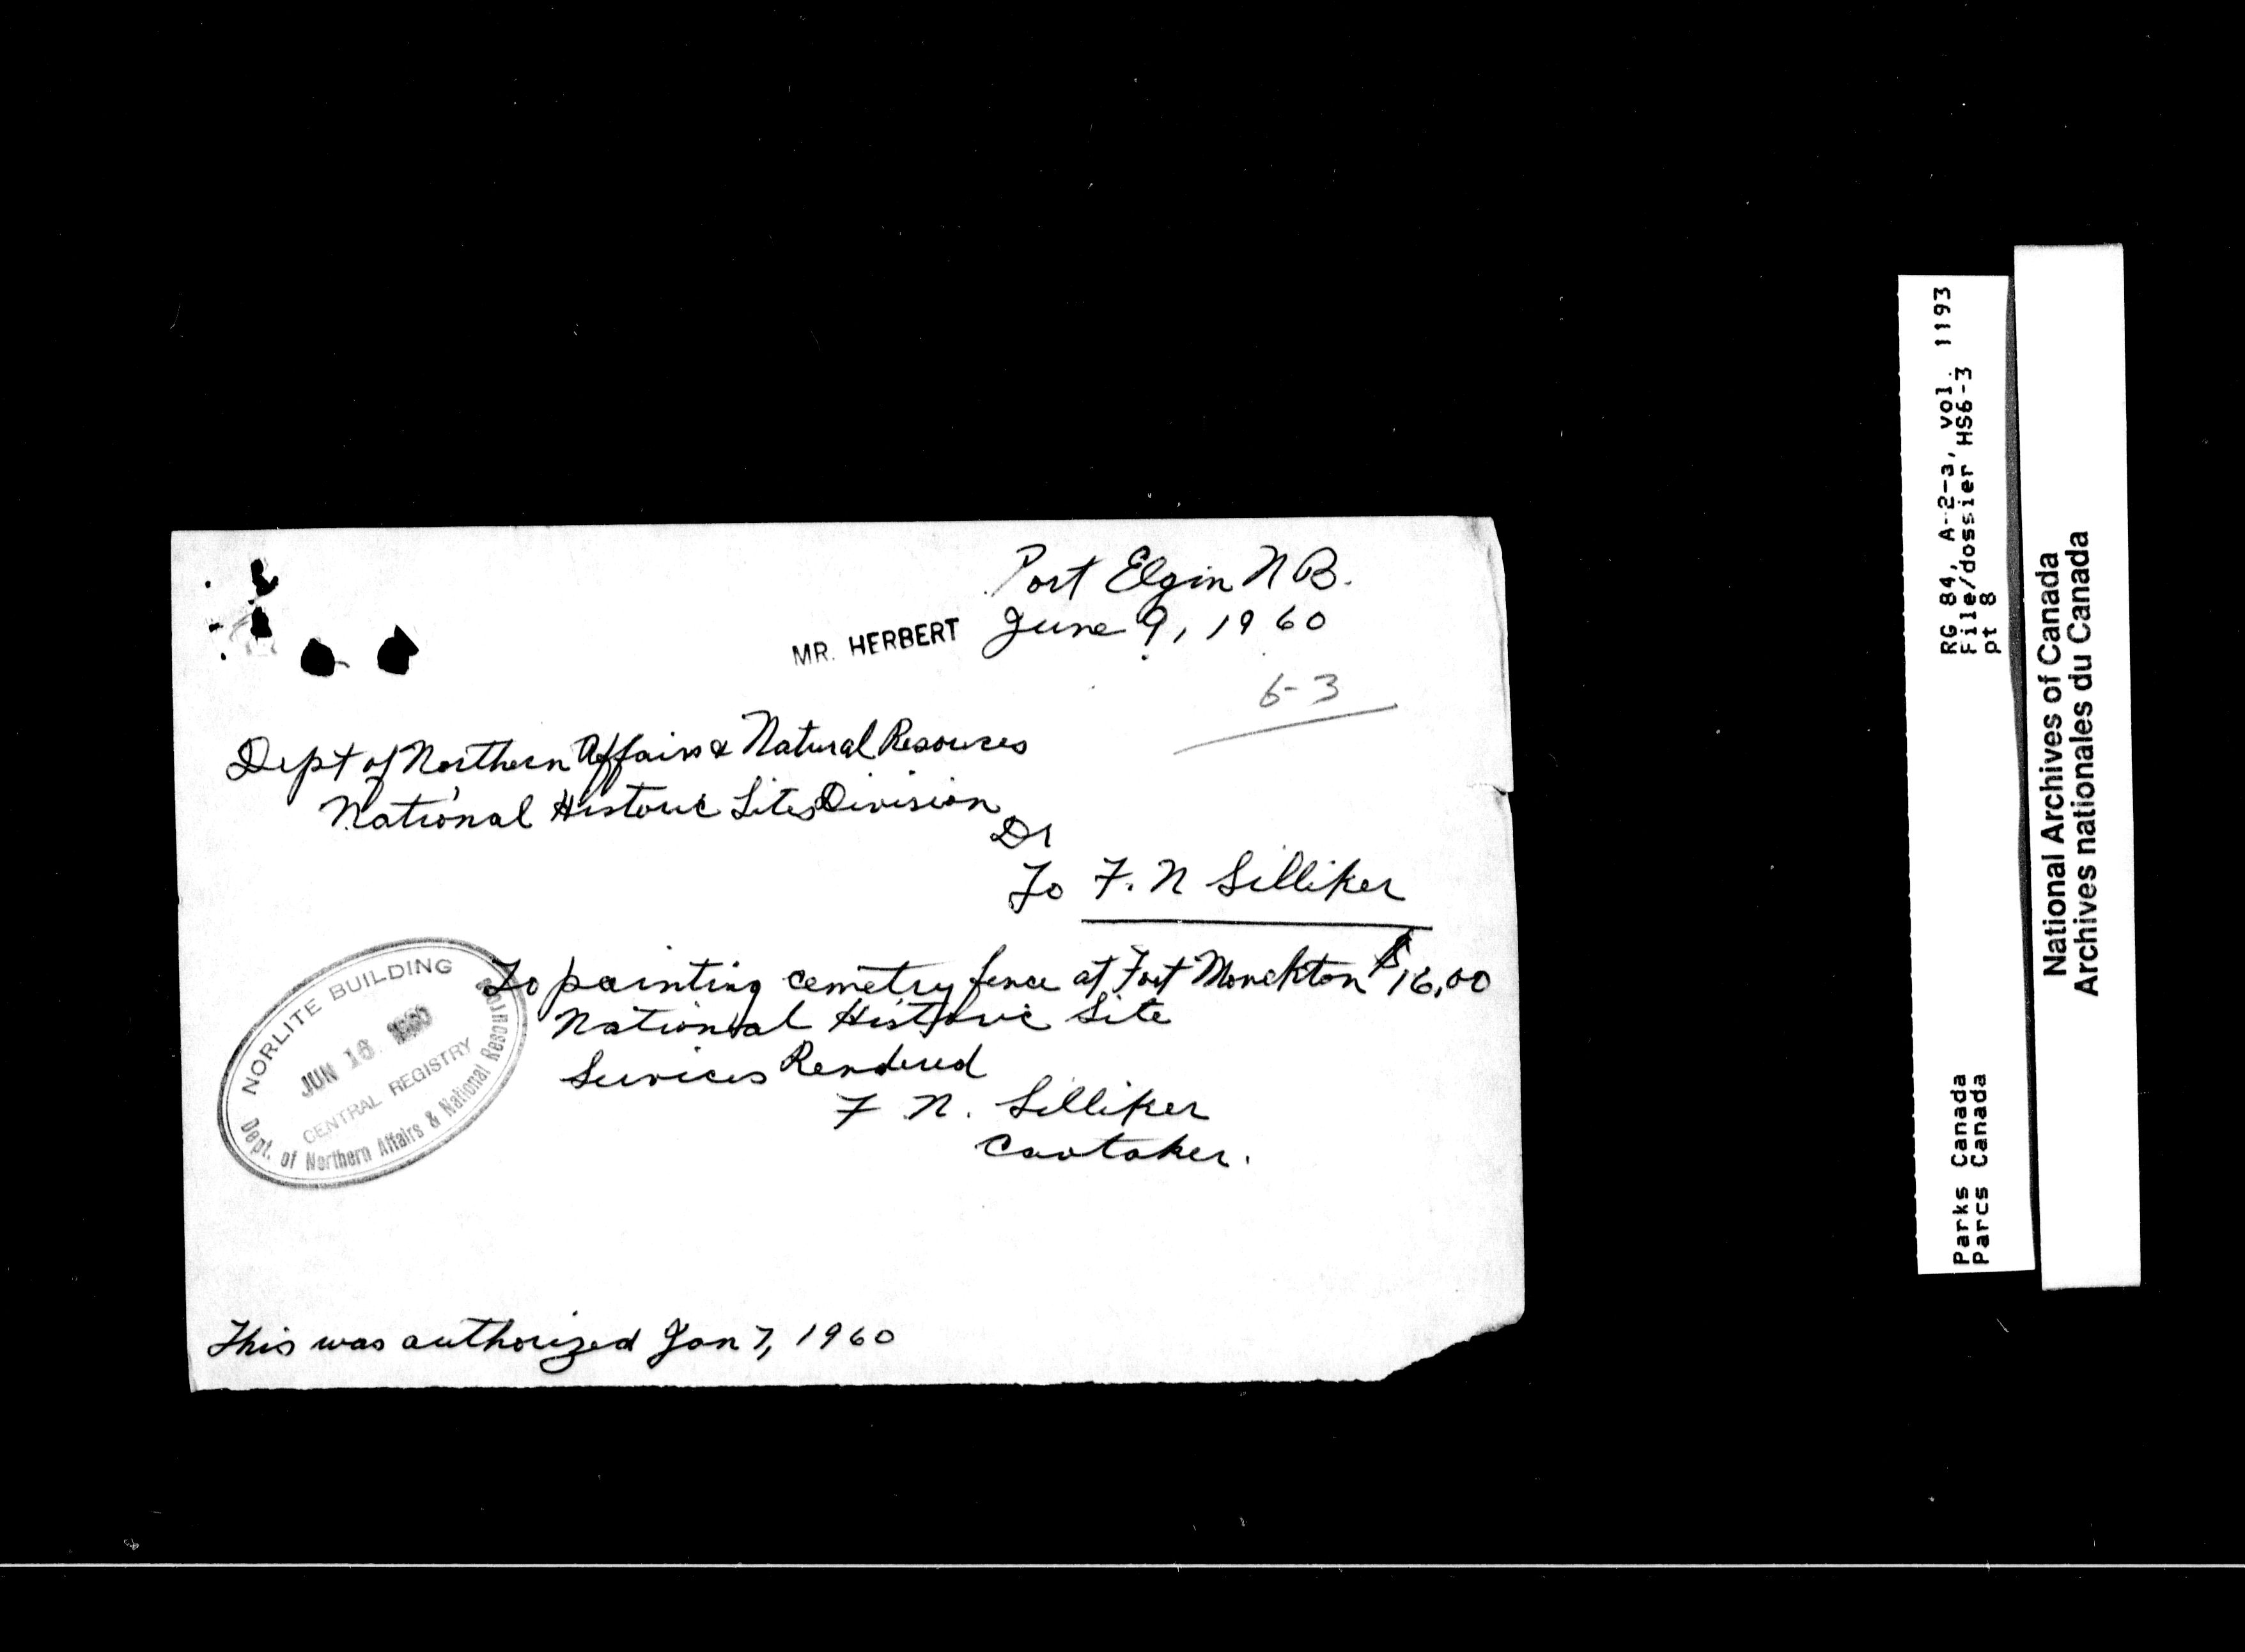 Port Elgin N B.
MR. HERBERT
June 9, 1960
6-3
Dept of Northern Affairs & Natural Resources
National Historic Sites Division
Dr
To F. N Silliker
To painting cemetry fence at Fort Monckton $16.00
National Historic Site
Services Rendered
F N. Silliker
Caretaker.
NORLITE BUILDING
JUN 16 1960
CENTRAL REGISTRY
Dept. of Northern Affairs & National Resources
This was authorized Jan 7, 1960
RG 84, A-2-3, vol. 1193
File/dossier HS6-3
pt 8
Parks Canada
Parcs Canada
National Archives of Canada
Archives nationales du Canada